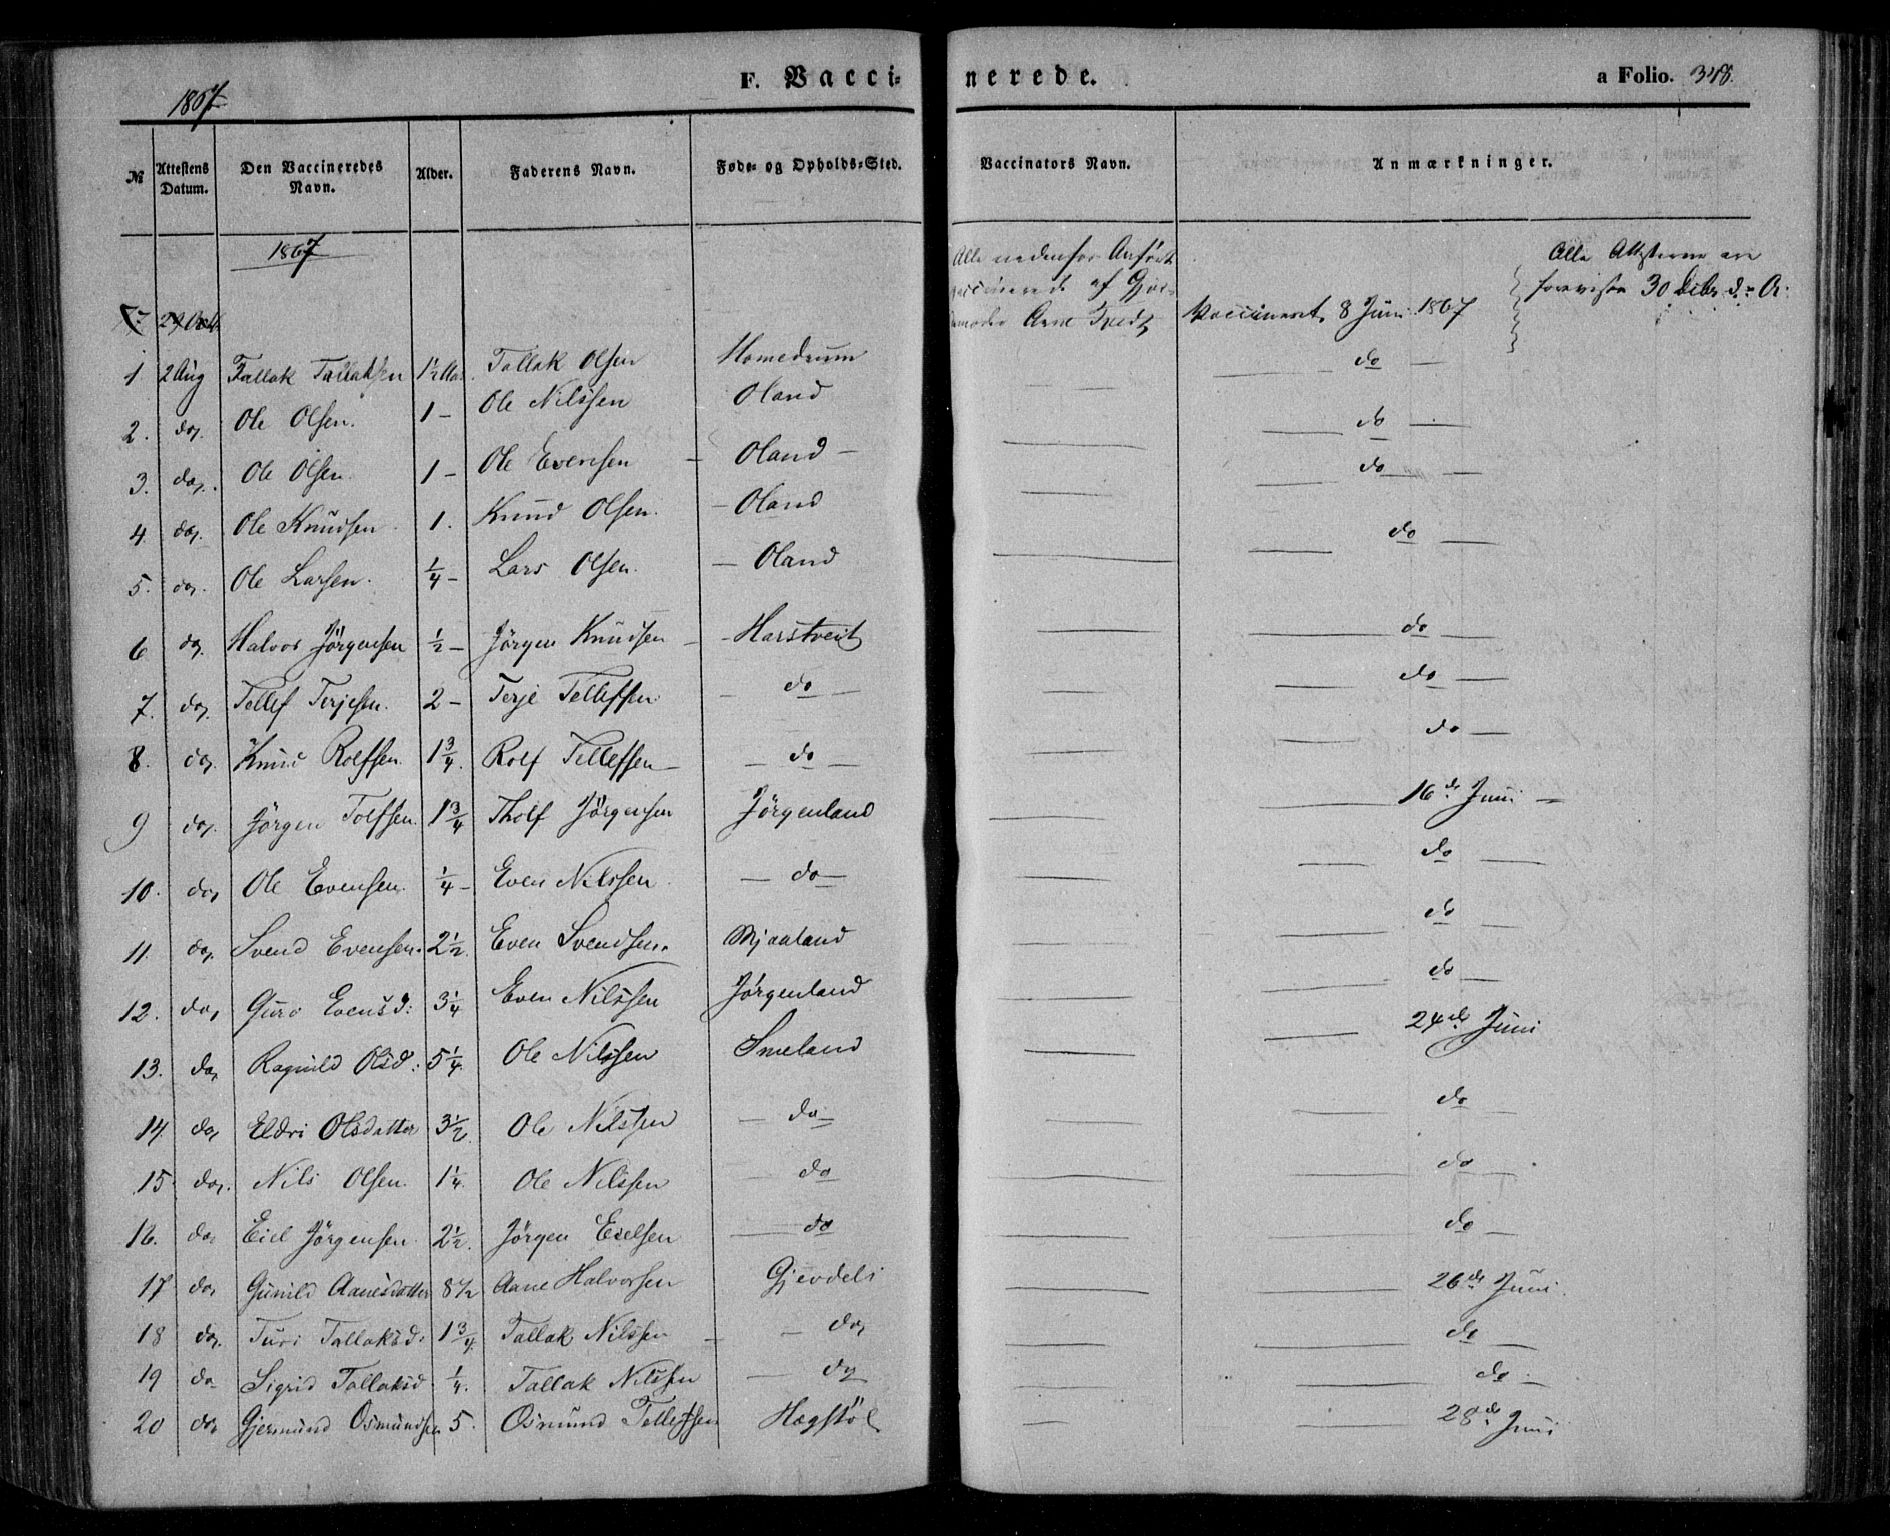 1867
F. Vacci-nerede.
a Folio. 348.
№ Attestens Datum. Den Vaccineredes Navn. Alder. Faderens Navn. Føde- og Opholds-Sted. Vaccinators Navn. Anmærkninger.
1867
Alle nedenfor Anført
Vaccinerede af Gjor-
demoder Anne Tvedt
Alle Attesterne ere
foreviste 30 Debr d: A:
Vaccineret 8 Juni 1867
1. 2 Aug Tallak Tallaksen 1½ Aar Tallak Olsen Homedrum do —
2. do. Ole Olsen. 1 – Ole Nilssen Oland do —
3. do. Ole Olsen. 1 – Ole Evensen – Oland – do —
4. do. Ole Knudsen 1. Knud Olsen. – Oland
5. do. Ole Larsen. ¼ – Lars Olsen. – Oland do —
6 do. Halvor Jørgensen ½ – Jørgen Knudsen – Harstveit do —
7. do. Tellef Terjesen. 2 – Terje Tellefsen – do – do —
8. do. Knud Rolfsen. 1¾. Rolf Tellefsen – do – do —
9 do. Jørgen Tolfsen. 1¾ Tholf Jørgensen Jørgenland 16de Juni –
10. do. Ole Evensen. ¼ – Even Nilssen – do – do —
11. do. Svend Evensen. 2½. Even Svendsen. Mjaaland do —
12. do. Guro Evensd: 3¼ Even Nilssen Jørgenland do —
13. do. Ragnild Olsd: 5¼. Ole Nilssen Smeland 24de Juni
14. do. Eldri Olsdatter 3½. Ole Nilssen – do – do
15. do. Nils Olsen. 1¼. Ole Nilssen – do do —
16. do. Eiel Jørgensen. 2½. Jørgen Eielsen – do do —
17 do. Gunild Aanesdatter 8½ Aane Halvorsen Gjevdeli 26de Juni.
18 do. Turi Tallaksd: 1¾. Tallak Nilssen – – do. do —
19 do Sigrid Tallaksd ¼. Tallak Nilssen – do do –
20 do. Gjermund Osmundsen 5. Osmund Tellefsen Hægstøl 28de Juni